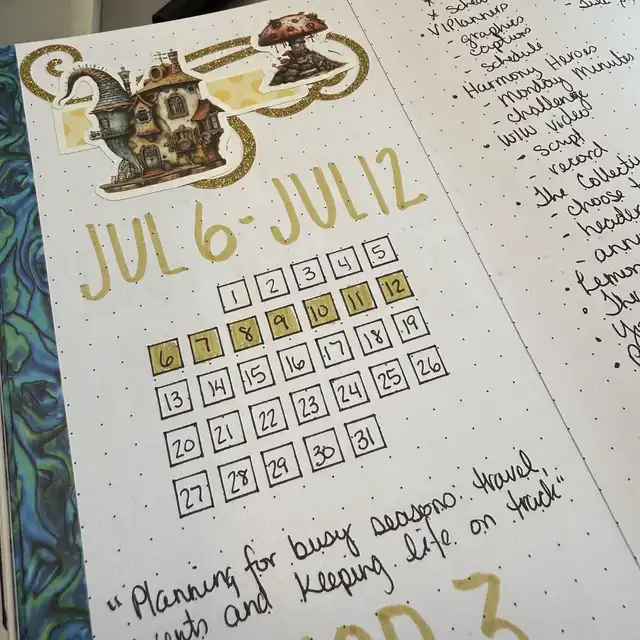 JUL 6-JUL12
1 2 3 4 5
6 7 8 9 10 11 12
13 14 15 16 17 18 19
20 21 22 23 24 25 26
27 28 29 30 31
"Planning for busy seasons: travel,
and keeping life on track"
3
VIPlanners
- graphics
- captions
- schedule
• Harmony Heroes
- Monday Minutes
- challenge
• WIW video
- script
- record
• The
- choose